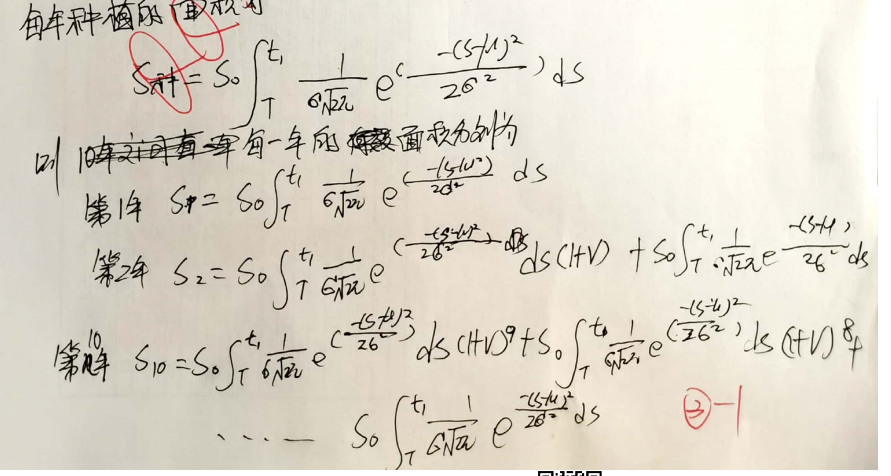 每年种植的面积为
S种 = S₀ ∫_T^{t₁} 1/(σ√2π) e^(-(S-μ)²/2σ²) ds
则 每一年的面积分别为
第1年 S₁ = S₀ ∫_T^{t₁} 1/(σ√2π) e^(-(S-μ)²/2σ²) ds
第2年 S₂ = S₀ ∫_T^{t₁} 1/(σ√2π) e^(-(S-μ)²/2σ²) ds (1+V) + S₀ ∫_T^{t₁} 1/(σ√2π) e^{-(S-μ)/2σ²} ds
第10年 S₁₀ = S₀ ∫_T^{t₁} 1/(σ√2π) e^(-(S-μ)²/2σ²) ds (1+V)⁹ + S₀ ∫_T^{t₁} 1/(σ√2π) e^(-(S-μ)²/2σ²) ds (1+V)⁸ +
…… S₀ ∫_T^{t₁} 1/(σ√2π) e^{-(S-μ)²/2σ²} ds
③-1